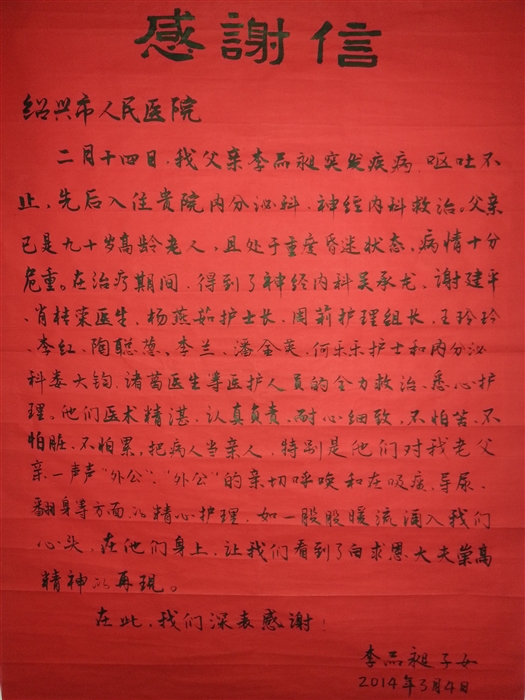 感謝信
绍兴市人民医院
二月十四日，我父亲李品昶突发疾病，呕吐不
止，先后入住贵院内分泌科、神经内科救治。父亲
已是九十岁高龄老人，且处于重度昏迷状态，病情十分
危重。在治疗期间，得到了神经内科吴承龙、谢建平
、肖桂荣医生、杨燕茹护士长、周莉护理组长、王玲玲
、李红、陶聪葱、李兰、潘金英、何乐乐护士和内分泌
科娄大钧、诸葛医生等医护人员的全力救治、悉心护
理，他们医术精湛、认真负责、耐心细致，不怕苦、不
怕脏、不怕累，把病人当亲人，特别是他们对我老父
亲一声声“外公”、“外公”的亲切呼唤和在吸痰、导尿、
翻身等方面的精心护理，如一股股暖流涌入我们
心头，在他们身上，让我们看到了白求恩大夫崇高
精神的再现。
在此，我们深表感谢！
李品昶子女
2014年3月4日